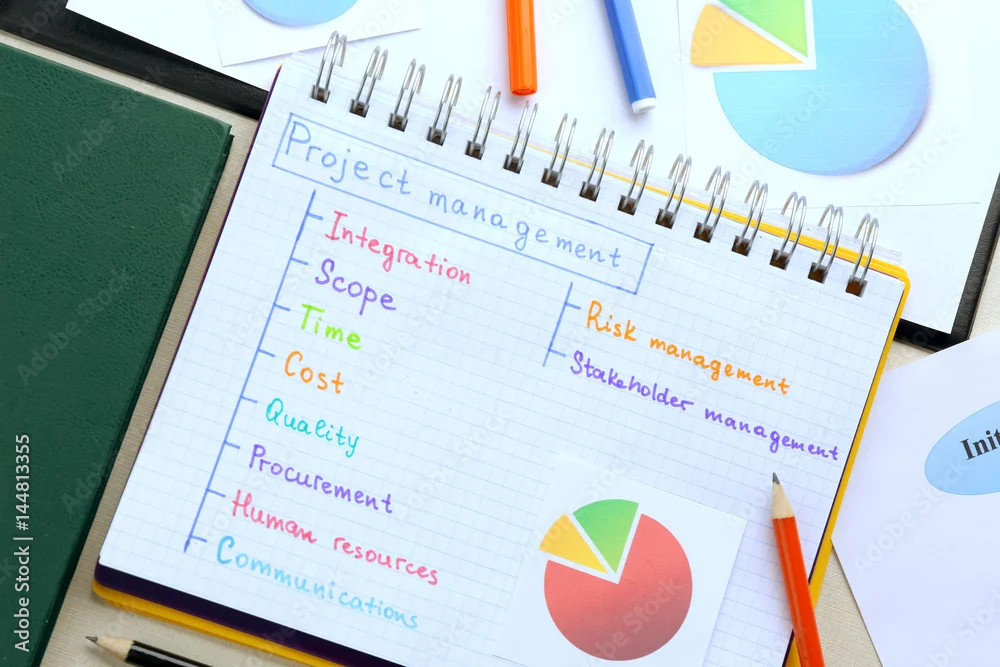 Project management
Integration
Scope
Time
Cost
Quality
Procurement
Human resources
Communications
Risk management
Stakeholder management
Init
Adobe Stock | #144813355